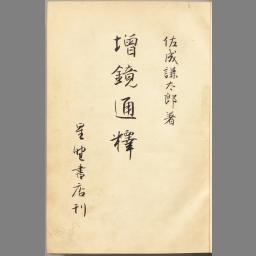 佐成謙太郎著
增鏡通釋
星野書店刊